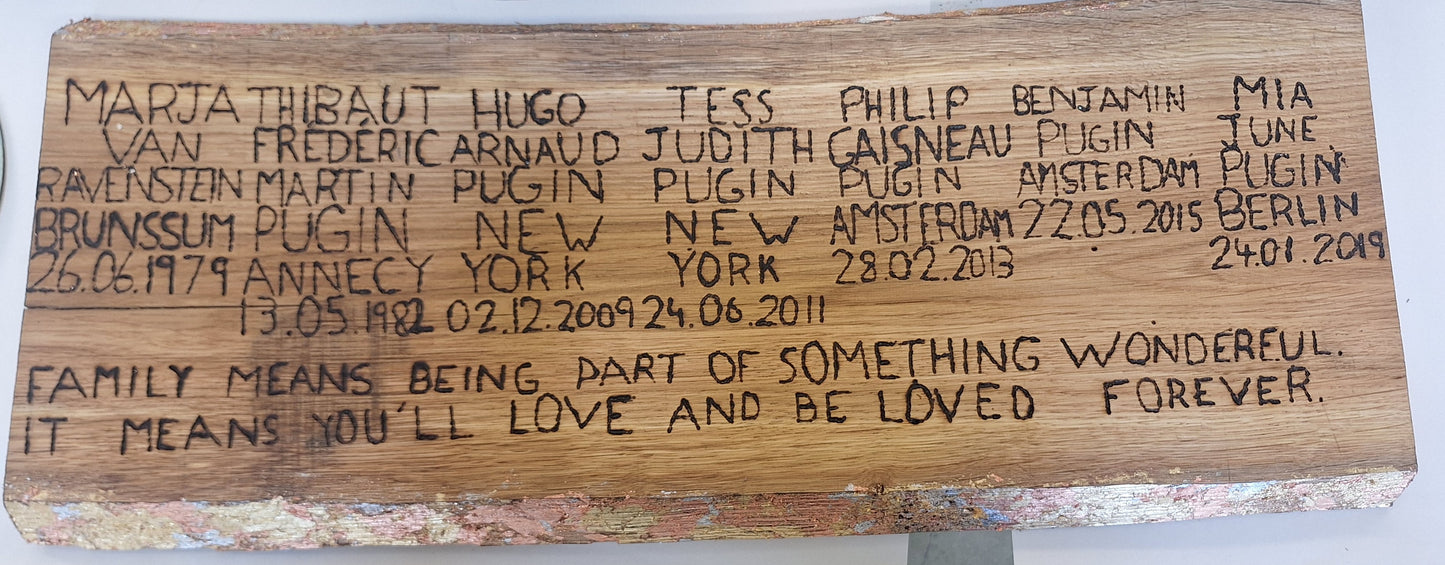 MARJA
VAN
RAVENSTEIN
BRUNSSUM
26.06.1979
THIBAUT
FRÉDÉRIC
MARTIN
PUGIN
ANNECY
13.05.1982
HUGO
ARNAUD
PUGIN
NEW
YORK
02.12.2009
TESS
JUDITH
PUGIN
NEW
YORK
24.06.2011
PHILIP
GAISNEAU
PUGIN
AMSTERDAM
28.02.2013
BENJAMIN
PUGIN
AMSTERDAM
22.05.2015
MIA
JUNE
PUGIN
BERLIN
24.01.2019
FAMILY MEANS BEING PART OF SOMETHING WONDEREUL.
IT MEANS YOU'LL LOVE AND BE LOVED FOREVER.